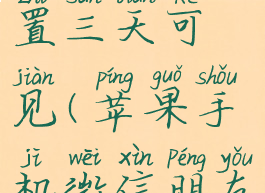 zhì sān tiān kě
置三天可
jiàn píng guǒ shǒu
见(苹果手
jī wēi xìn péng yǒu
机微信朋友